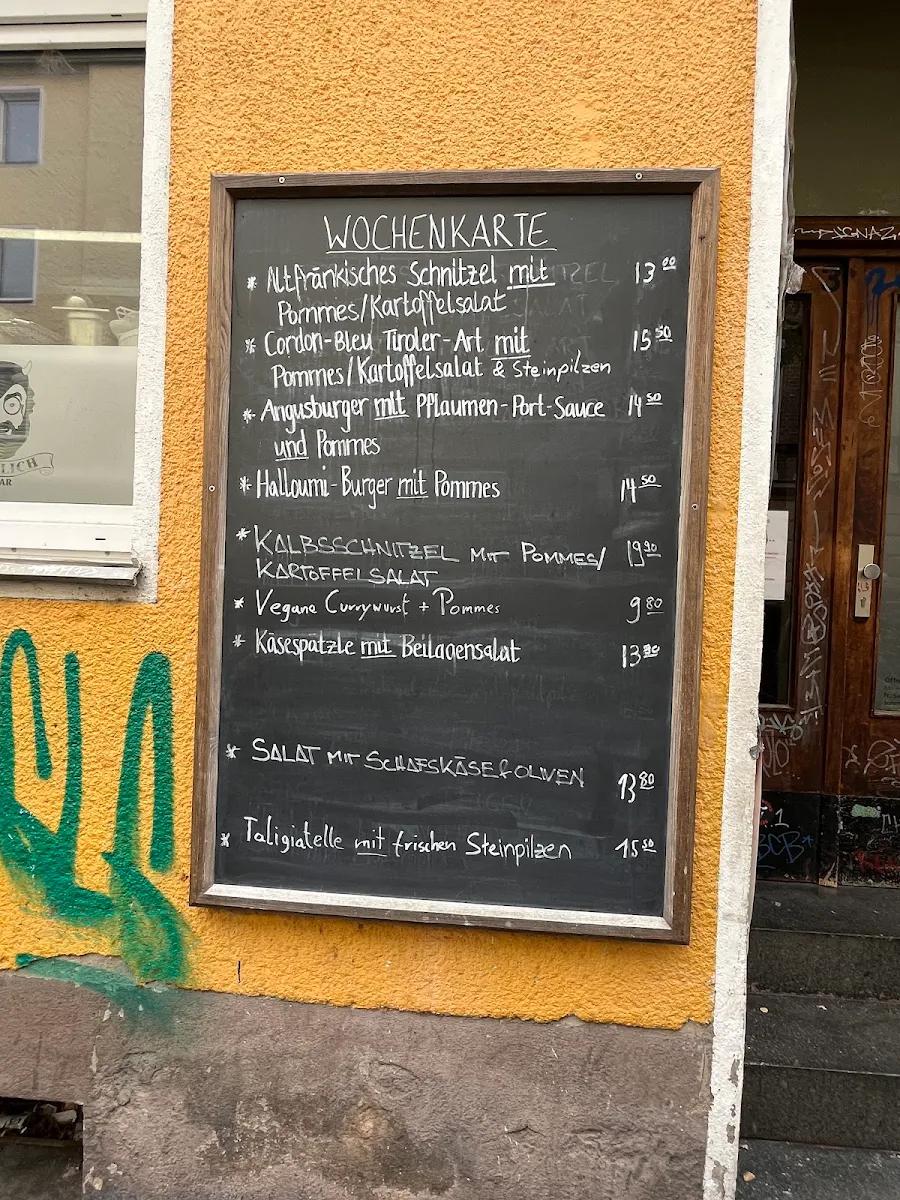 WOCHENKARTE
* Altfränkisches Schnitzel mit 13 00
Pommes/Kartoffelsalat
* Cordon-Bleu Tiroler-Art mit 15 50
Pommes/Kartoffelsalat & Steinpilzen
* Angusburger mit Pflaumen-Port-Sauce 14 50
und Pommes
* Halloumi-Burger mit Pommes 14 50
* KALBSSCHNITZEL MIT POMMES/ 19 90
KARTOFFELSALAT
* Vegane Currywurst + Pommes 9 80
* Käsespätzle mit Beilagensalat 13
* SALAT MIT SCHAFSKÄSE & OLIVEN 13 80
* Taligiatelle mit frischen Steinpilzen 15 50
LICH
AR